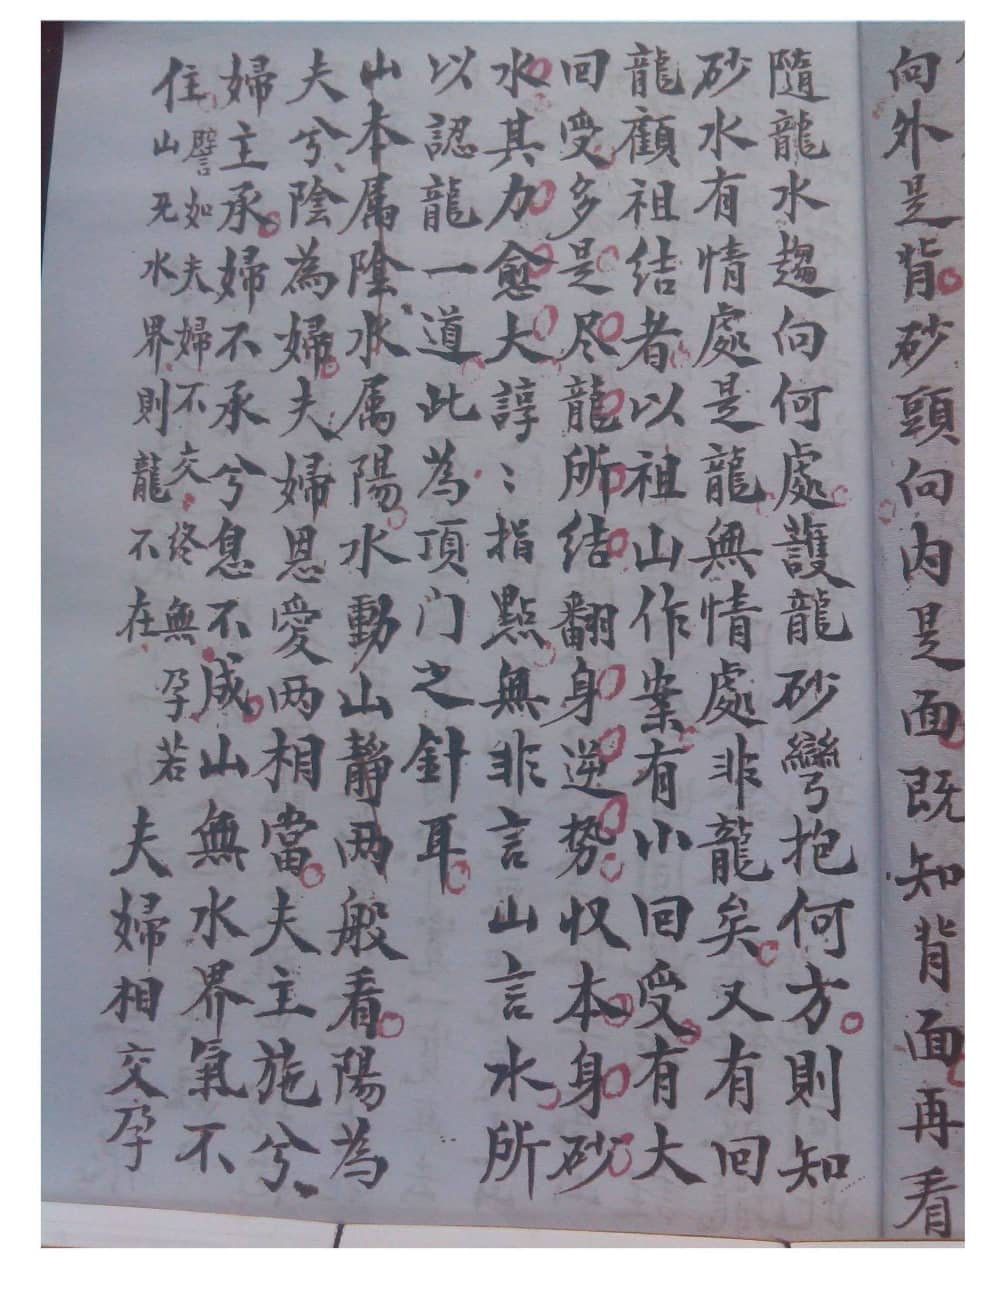 向外是背砂頭向内是面既知背面再看
隨龍水趨向何處護龍砂彎抱何方則知
砂水有情處是龍無情處非龍矣又有回
龍顧祖結者以祖山作案有小回受有大
回受多是尽龍所結翻身逆勢収本身砂
水其力愈大諄〻指點無非言山言水所
以認龍一道此為頂门之針耳
山本属陰水属陽水動山靜两般看陽為
夫兮陰為婦夫婦恩愛两相當夫主施兮
婦主承婦不承兮息不成山無水界氣不
住譬如夫婦不交終無孕若夫婦相交孕
山旡水界則龍不在